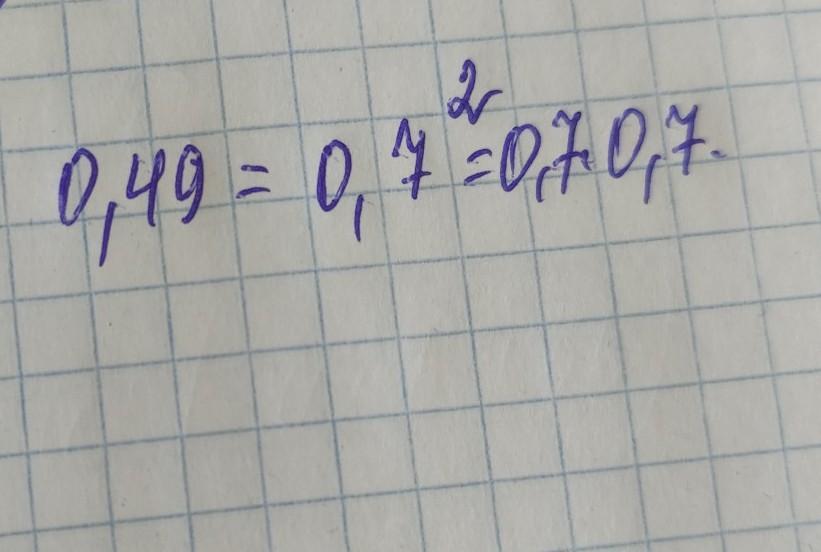 0,49 = 0,7² = 0,7·0,7.